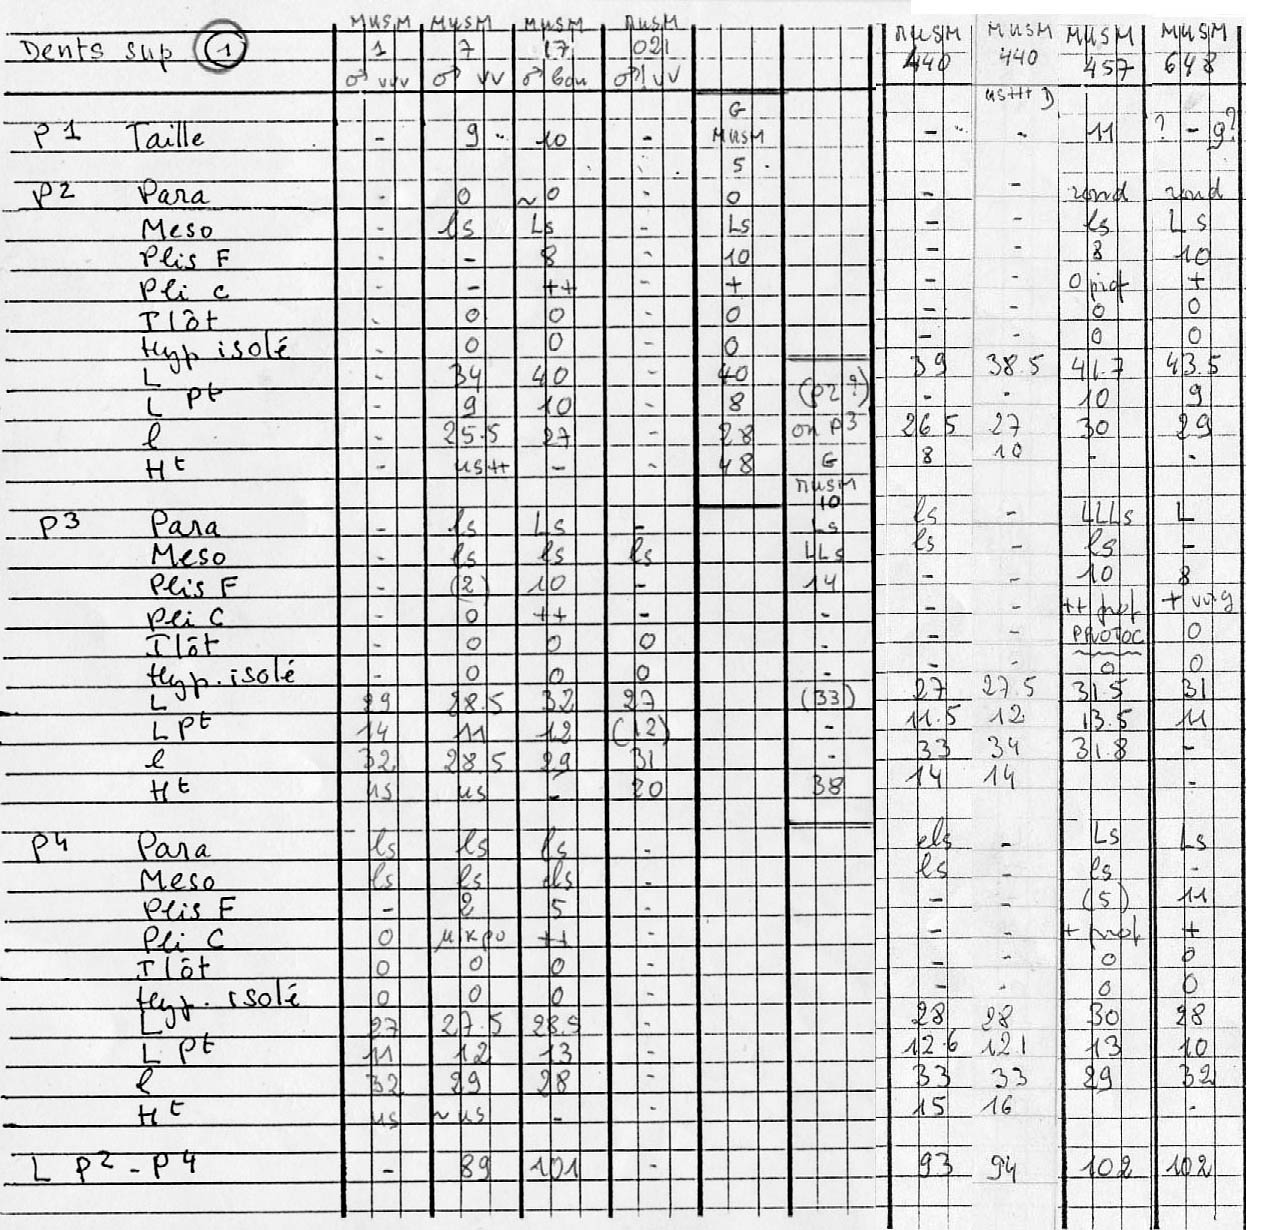 MUSM MUSM MUSM MUSM MUSM MUSM MUSM MUSM
Dents sup 1 1 7 17 021 440 440 457 648
♂ vvv ♂ vv ♂ ♂! vv us+++ D
G
P1 Taille - 9 - 10 - MUSM - - 11 ? - 9?
5
P2 Para - 0 ~0 - 0 - - rond rond
Meso - ls Ls - Ls - - ls Ls
Plis F - - 8 - 10 - - 8 10
Pli C - - ++ - + - - 0 prof +
Ilôt - 0 0 - 0 - - 0 0
Hyp isolé - 0 0 - 0 - - 0 0
L - 34 40 - 40 39 38.5 41.7 43.5
L Pt - 9 10 - 8 (P2?) - - 10 9
l - 25.5 27 - 28 ou P3 26.5 27 30 29
Ht - us++ - - 48 G 8 10 - -
MUSM
10
P3 Para - ls Ls - Ls ls - LLLs L
Meso - ls ls ls LLs ls - ls -
Plis F - (2) 10 - 14 - - 10 8
Pli C - 0 ++ - - - - ++ prof +
Ilôt - 0 0 0 - - - PROTOC 0
Hyp. isolé - 0 0 0 - - - 0 0
L 29 28.5 32 27 (33) 27 27.5 31.5 31
L Pt 14 11 12 (12) - 11.5 12 13.5 11
l 32 28.5 29 31 - 33 34 31.8 -
Ht us us - 20 38 14 14 -
P4 Para ls ls ls - els - Ls Ls
Meso ls ls - ls - ls -
Plis F - 2 5 - - - (5) 11
Pli C 0 μικρο ++ - - - + prof +
Ilôt 0 0 0 - - - 0 0
Hyp. isolé 0 0 0 - - - 0 0
L 27 27.5 28.5 - 28 28 30 28
L Pt 11 12 13 - 12.6 12.1 13 10
l 32 29 28 - 33 33 29 32
Ht us ~us - - 15 16 -
L P2 - P4 - 89 101 - 93 94 102 102